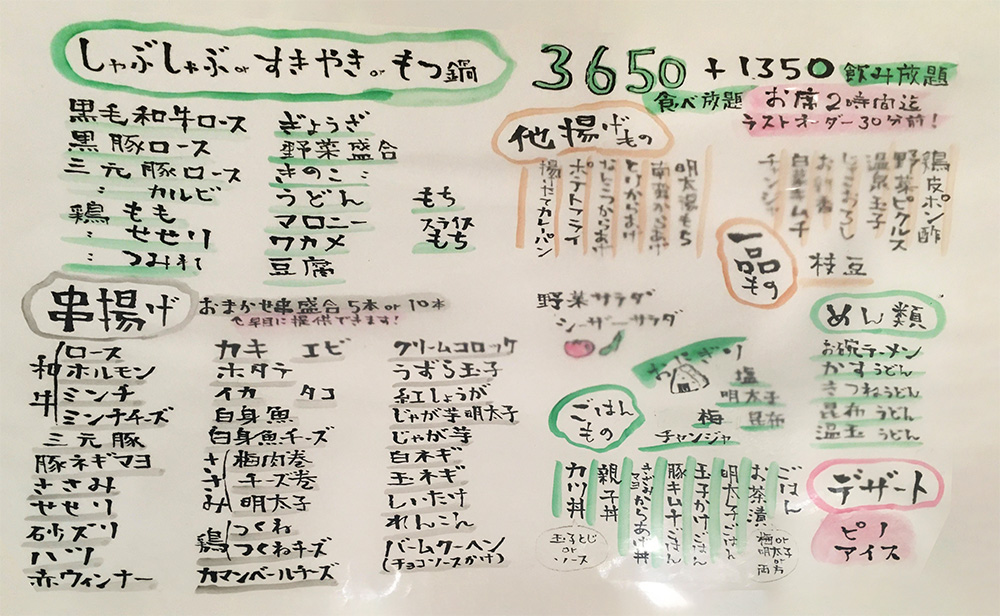 しゃぶしゃぶorすきやきorもつ鍋
3650 + 1350 飲み放題
食べ放題 お席2時間迄
ラストオーダー30分前!
黒毛和牛ロース
黒豚ロース
三元豚ロース
〃 カルビ
鶏もも
〃 せせり
〃 つみれ
ぎょうざ
野菜盛合
きのこ〃
うどん
マロニー
ワカメ
豆腐
もち
スライス
もち
他揚げもの
明太揚もち
南蛮からあげ
とりからあげ
なんこつからあげ
ポテトフライ
揚たてカレーパン
一品もの
鶏皮ポン酢
野菜ピクルス
温泉玉子
白菜キムチ
チャンジャ
枝豆
野菜サラダ
シーザーサラダ
串揚げ
おまかせ串盛合5本or10本
で早目に提供できます!
和牛
ロース
ホルモン
ミンチ
ミンチチーズ
三元豚
豚ネギマヨ
ささみ
せせり
砂ズリ
ハツ
赤ウィンナー
カキ エビ
ホタテ
イカ タコ
白身魚
白身魚チーズ
ささみ
梅肉巻
チーズ巻
明太子
鶏
つくね
つくねチーズ
カマンベールチーズ
クリームコロッケ
うずら玉子
紅しょうが
じゃが芋明太子
じゃが芋
白ネギ
玉ネギ
しいたけ
れんこん
バームクーヘン
(チョコソースかけ)
おにぎり
塩
明太子
梅 昆布
チャンジャ
ごはんもの
ごはん
お茶漬
梅or明太子or両方
明太子ごはん
玉子かけごはん
豚キムチごはん
からあげ丼
親子丼
カツ丼
玉子とじorソース
めん類
お碗ラーメン
かすうどん
きつねうどん
昆布うどん
温玉うどん
デザート
ピノ
アイス